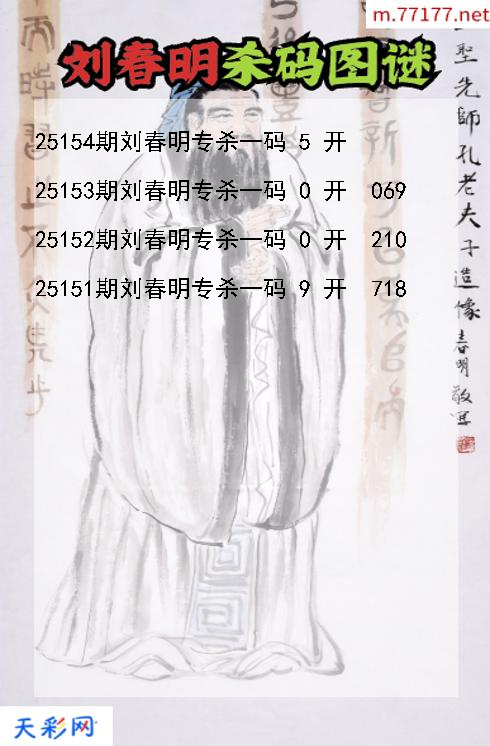 m.77177.net
刘春明杀码图谜
25154期刘春明专杀一码 5 开
25153期刘春明专杀一码 0 开 069
25152期刘春明专杀一码 0 开 210
25151期刘春明专杀一码 9 开 718
聖先師孔老夫子造像春明敬寫
天彩网